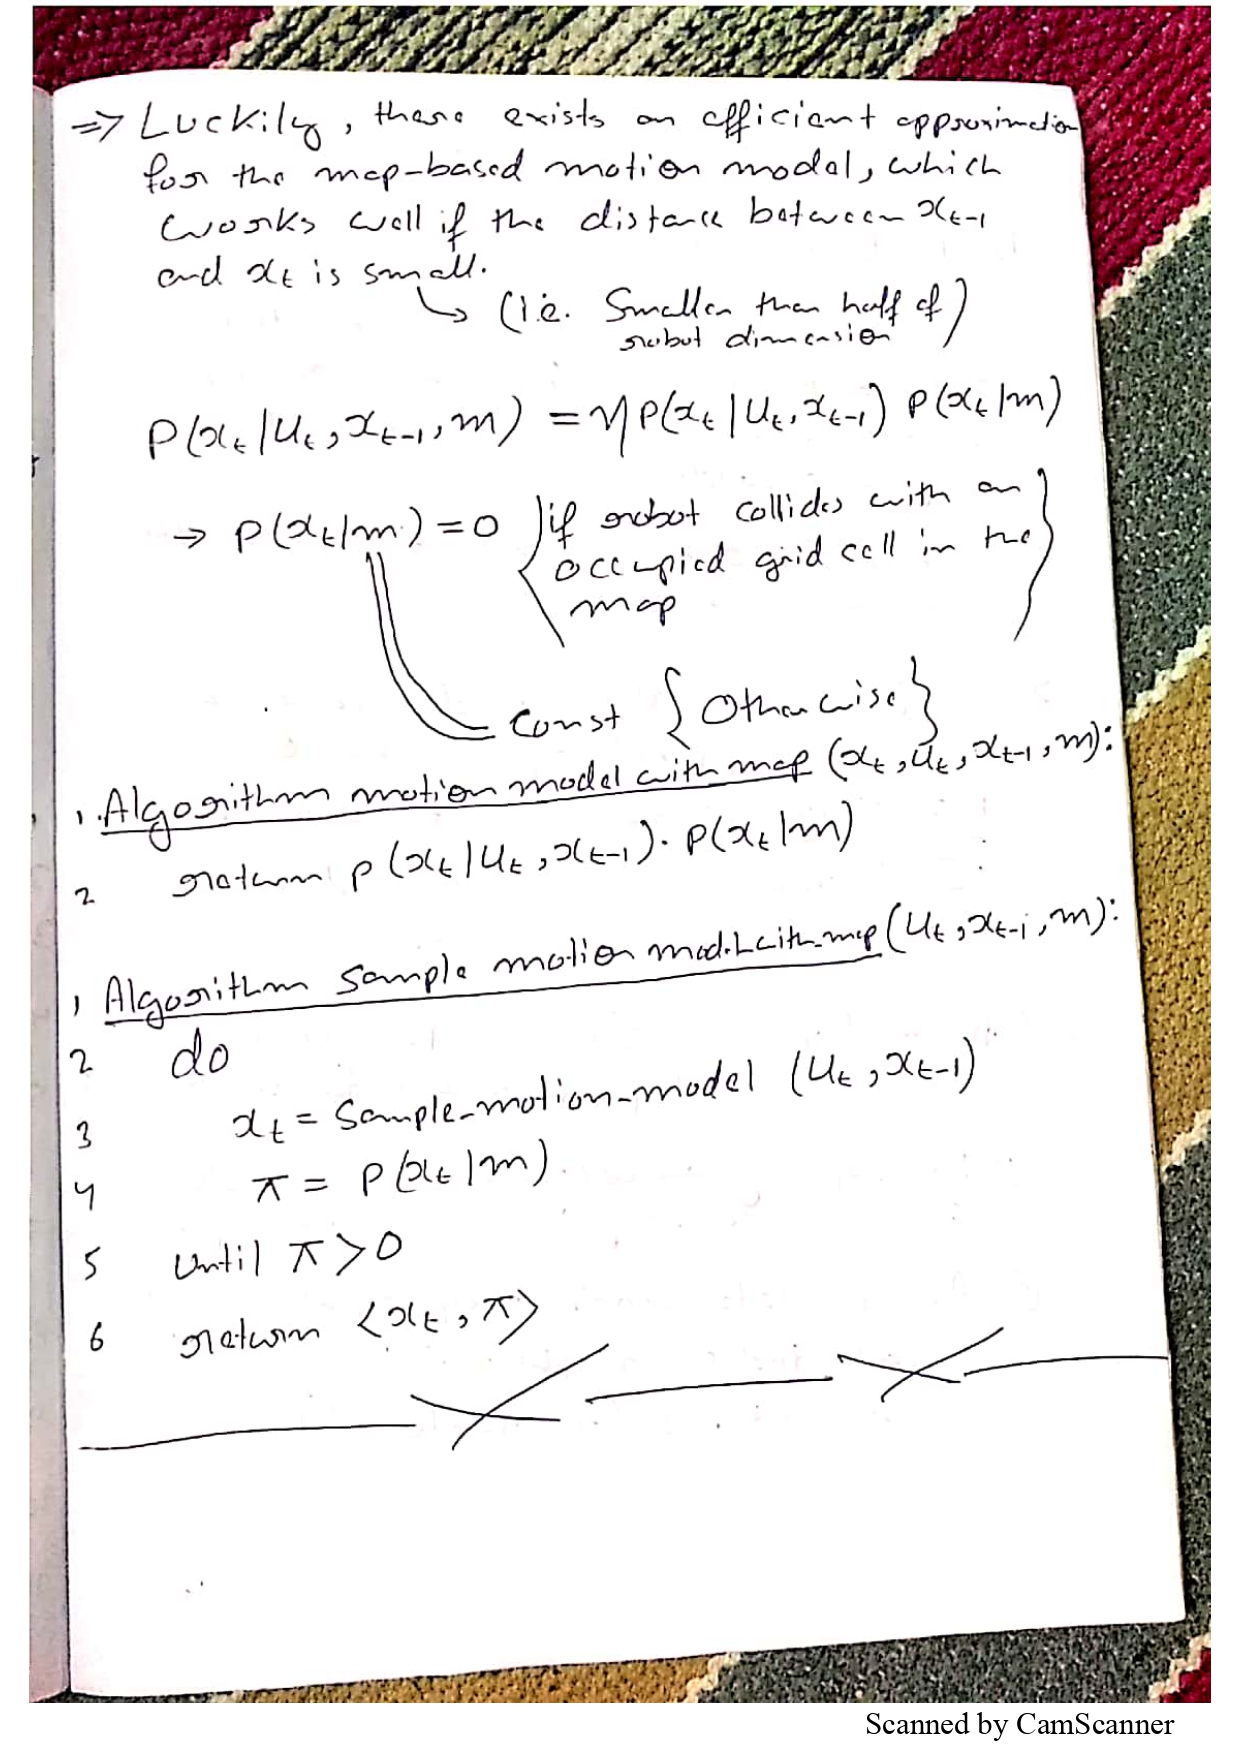 => Luckily, there exists an efficient approximation
for the map-based motion model, which
works well if the distance between x_{t-1}
and x_t is small.
↳ (i.e. Smaller than half of
robot dimension)
P(x_t | u_t, x_{t-1}, m) = η P(x_t | u_t, x_{t-1}) P(x_t | m)
→ P(x_t | m) = 0 {if robot collides with an
occupied grid cell in the
map}
Const {Otherwise}
1. Algorithm motion model with map (x_t, u_t, x_{t-1}, m):
2 return p(x_t | u_t, x_{t-1}) · P(x_t | m)
1 Algorithm sample motion model with_map (u_t, x_{t-1}, m):
2 do
3 x_t = Sample_motion_model (u_t, x_{t-1})
4 π = P(x_t | m)
5 Until π > 0
6 return <x_t, π>
Scanned by CamScanner